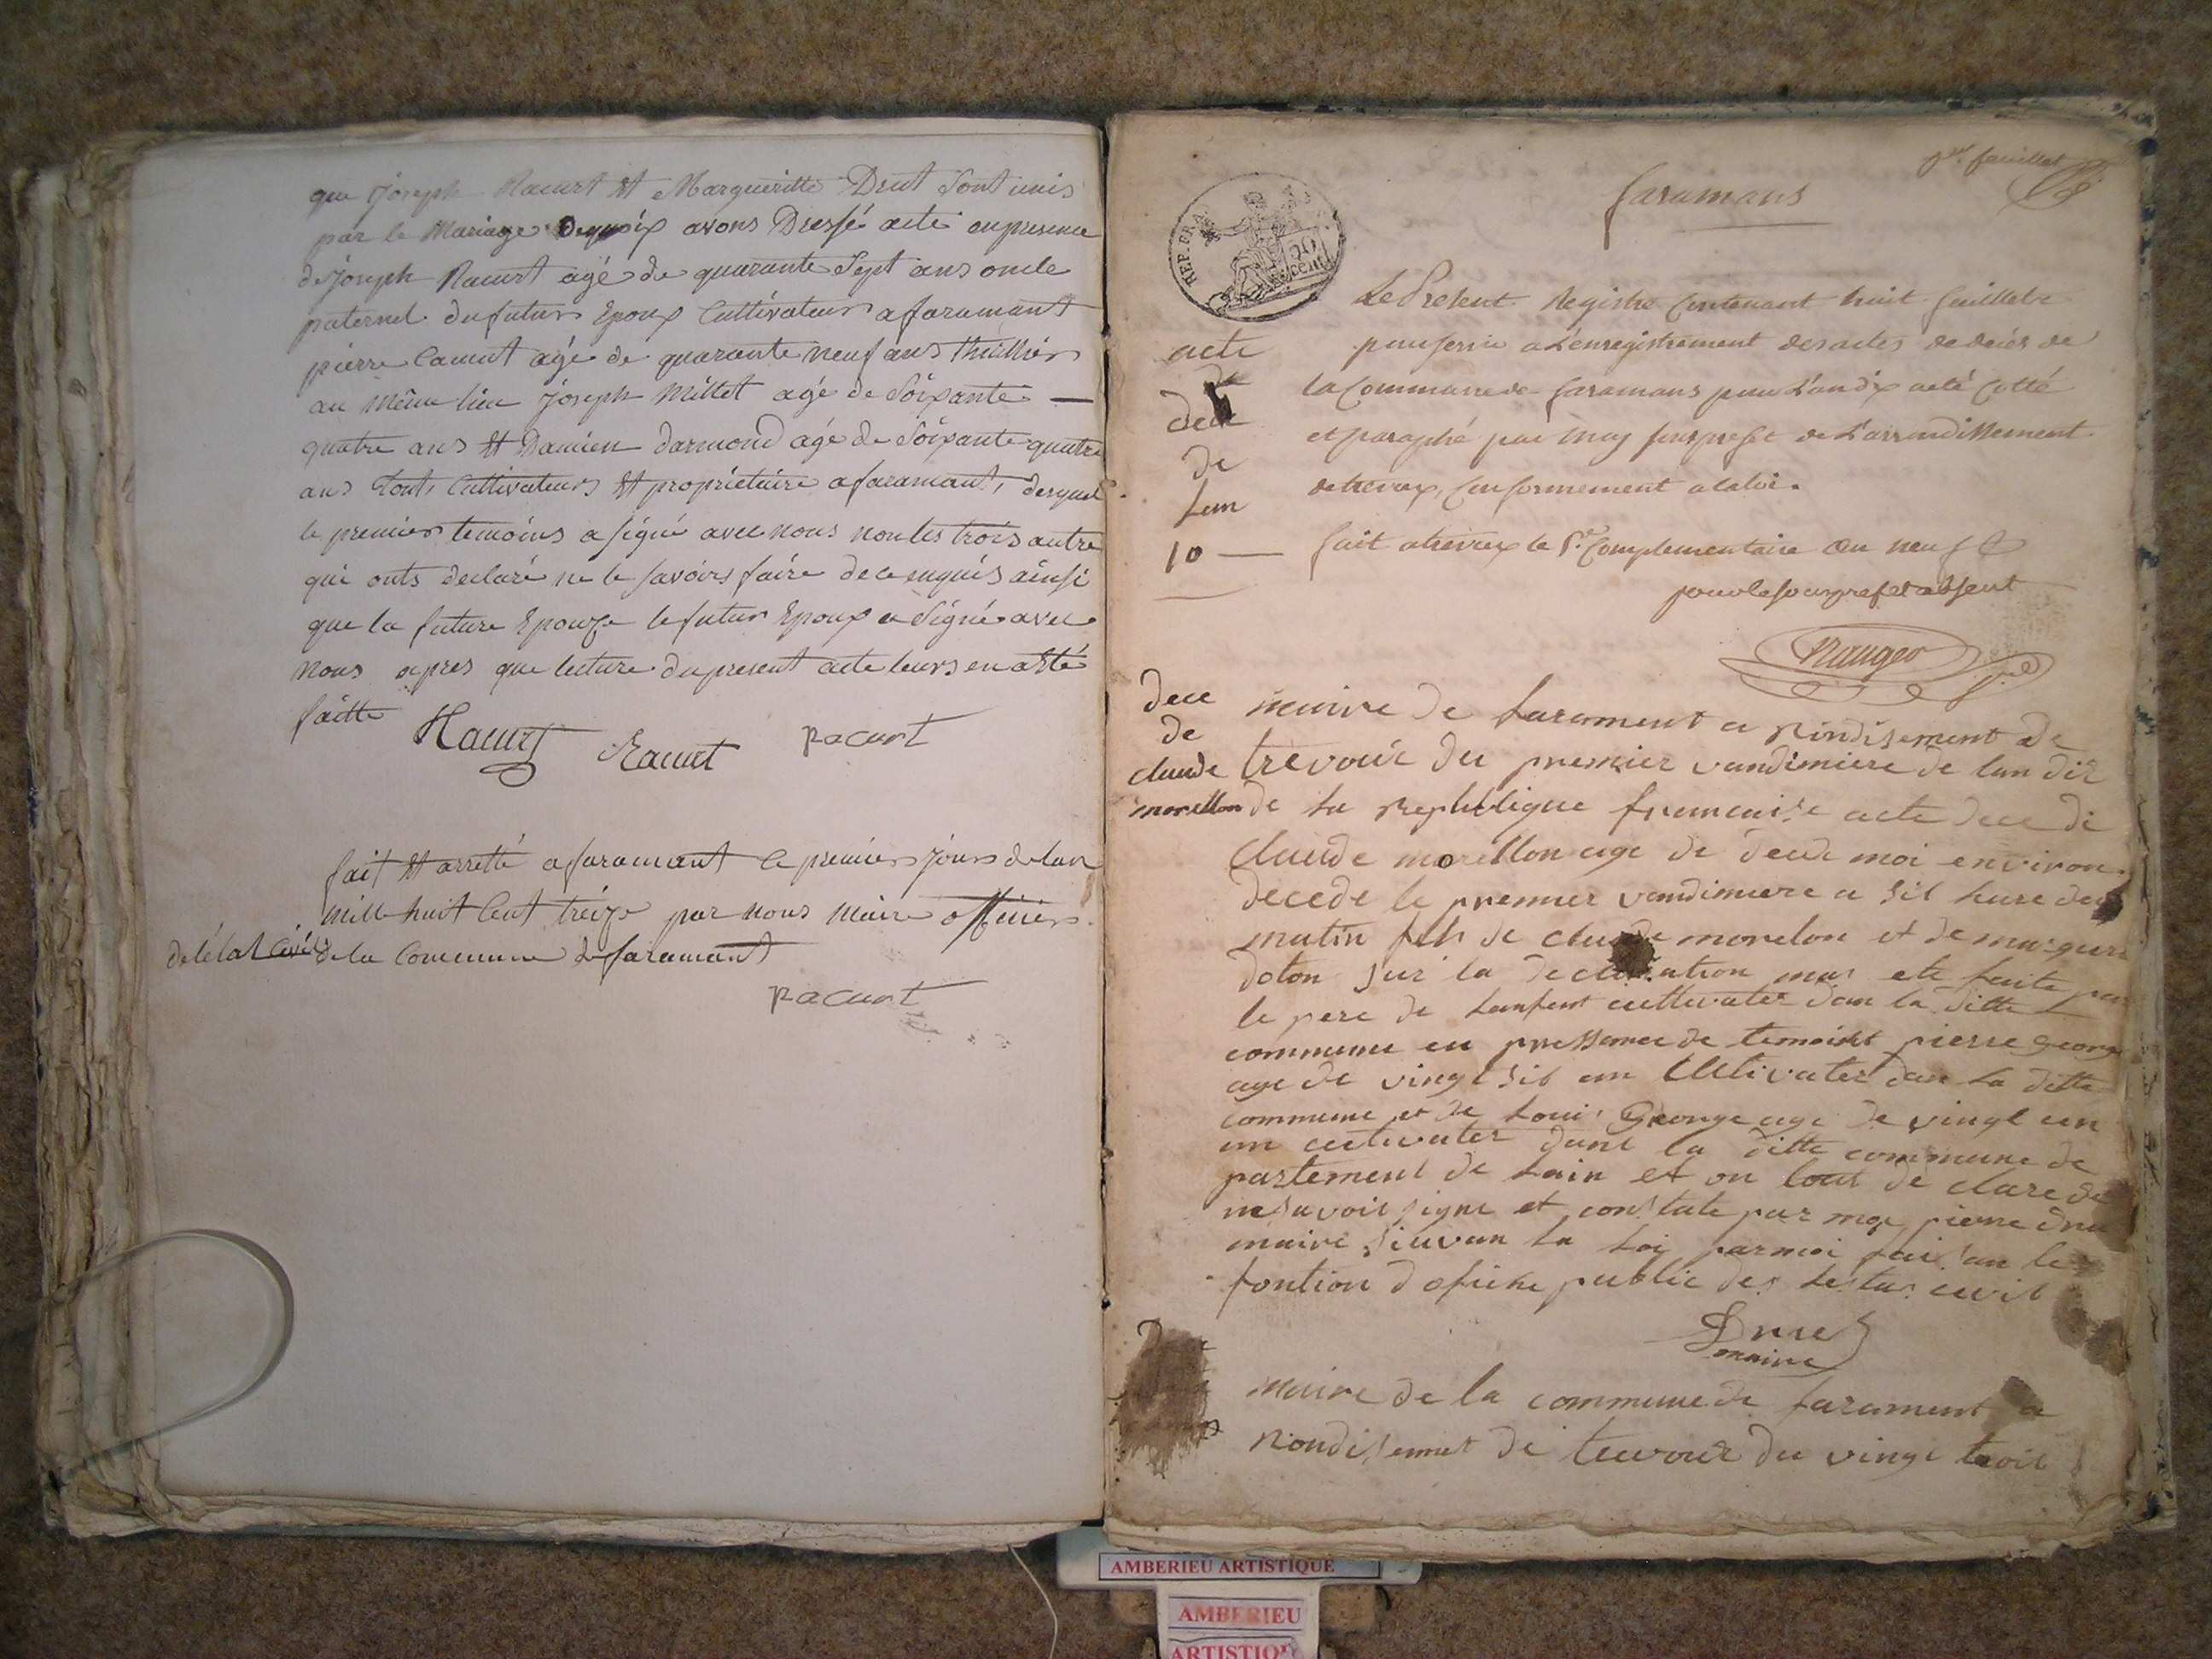 que Joseph Racurt et Margueritte Drut Sont unis
par le Mariage Dequoix avons Dressé acte en presence
de Joseph Racurt agé de quarante Sept ans oncle
paternel du futur Epoux Cultivateur a faramant
pierre Camut agé de quarante neuf ans thuillier
au même lieu Joseph Millet agé de Soixante —
quatre ans et Damien darmond agé de Soixante quatre
ans tout, Cultivateurs et propriétaire a faramant, desquel
le premier temoins a signé avec nous non les trois autre
qui onts declaré ne le savoirs faire de ce enquis ainsi
que la future Epouze le futur Epoux a Signé avec
nous apres que lecture du present acte leurs en a Eté
faitte
Racurt Racurt Racurt
fait et arretté a faramant le premier Jours de lan
mille huit Cent treize par nous Maire officier
de létat Civil de la Commune de faramant
Racurt
1er feuillet
faramans
REP. FRA.
50 cent
Le Present Registre Contenant huit feuillets
pour servir a L'enregistrement des actes de décès de
la Commune de faramans pour L'an dix a eté Cotté
et paraphé par moy souprefet de L'arrondissement
de trevoux, Conformement a la loi.
fait a trevoux le 5e Complementaire an neuf
pour le souprefet absent
acte
de
dece
de
Lan
10 —
dece
de
claude
morellon
maire de farament a Rindisement de
trevour du premier vandimiere de lan dix
de La Republique francaise acte dece de
Claude morellon age de deux moi environ
decede le premier vandimiere a sis hure du
matin fils de claude morelon et de
doton sur la declaration mas ete faite par
le pere de Lanfent cultivater dan la ditte
commune en pressance de temoins pierre George
age de vingt sis an Cultivater dan La ditte
commune et de Loui George age de vingt un
an cultivater dans la ditte commune de
partement de Lain et on tout de clare de
ne savoir signe et constate par moi pierre dru
maire suivan La Loi par moi faisan le
fontion d oficie public des Lestas civil
Drue
maire
maire de la commune de farament a
Rondisemet de trevour du vingt trois
AMBERIEU ARTISTIQUE
AMBERIEU